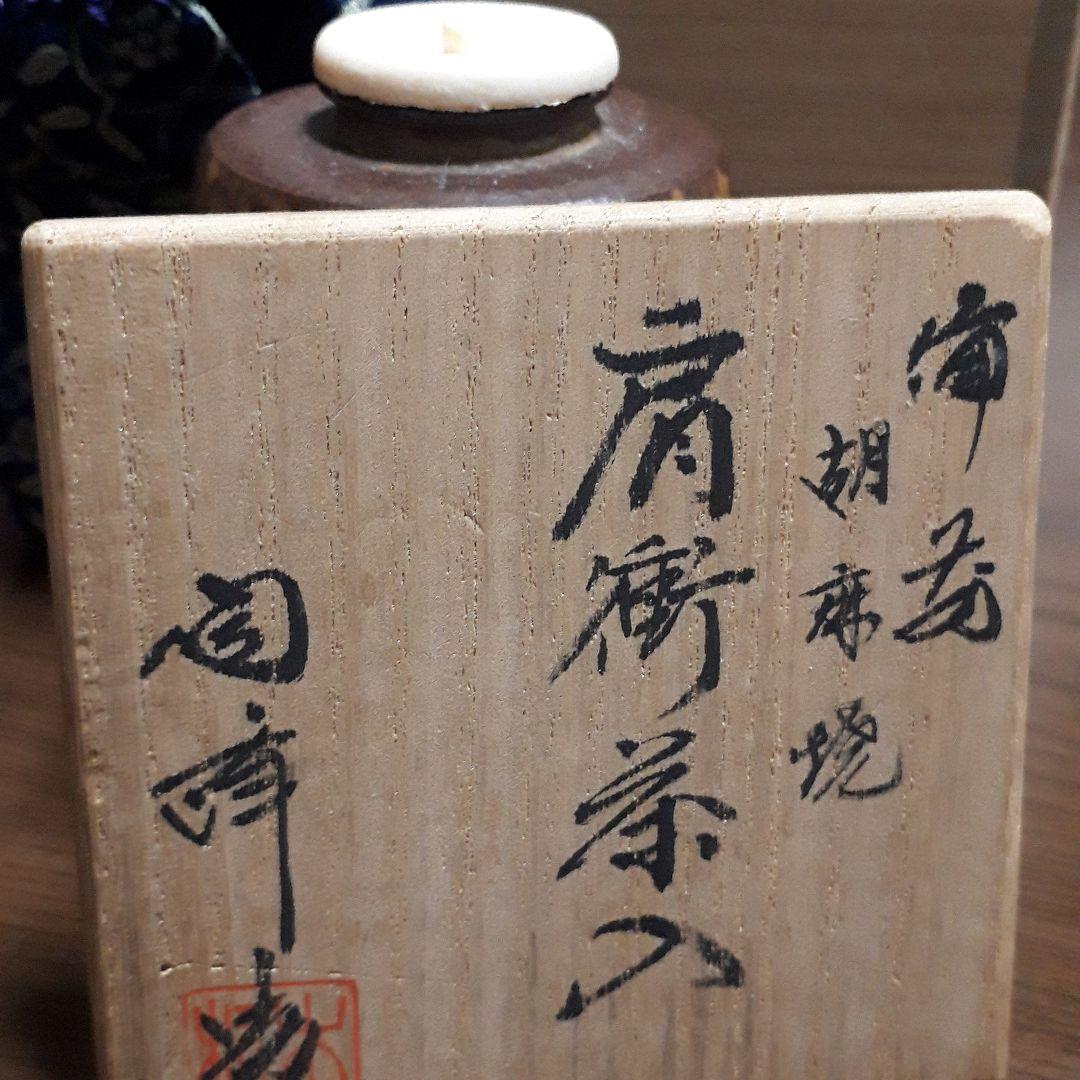 備前
胡麻焼
肩衝茶入
陶峰